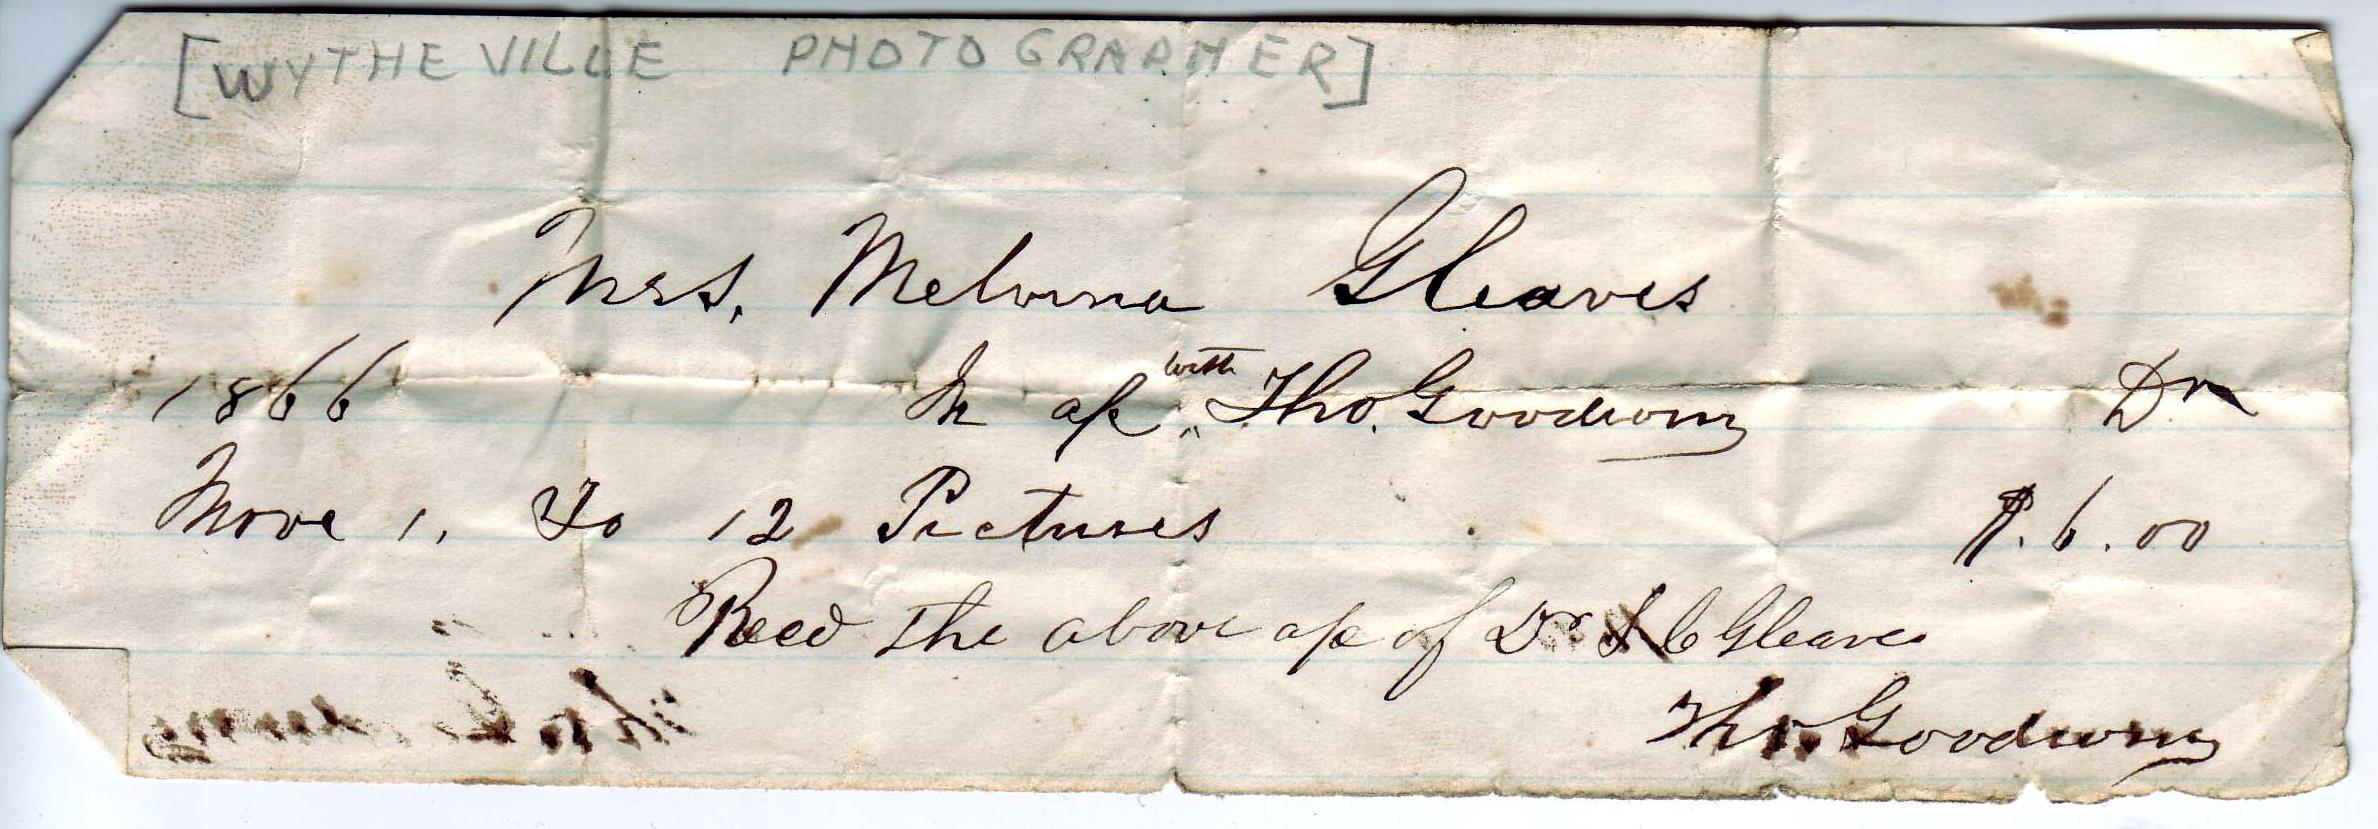 [WYTHEVILLE PHOTOGRAPHER]
Mrs. Melvina Gleaves
1866 In a/c with Tho. Goodwin Dr
Nove 1. To 12 Pictures $.6.00
Recd the above a/c of Dr S C Gleaves
Tho. Goodwin